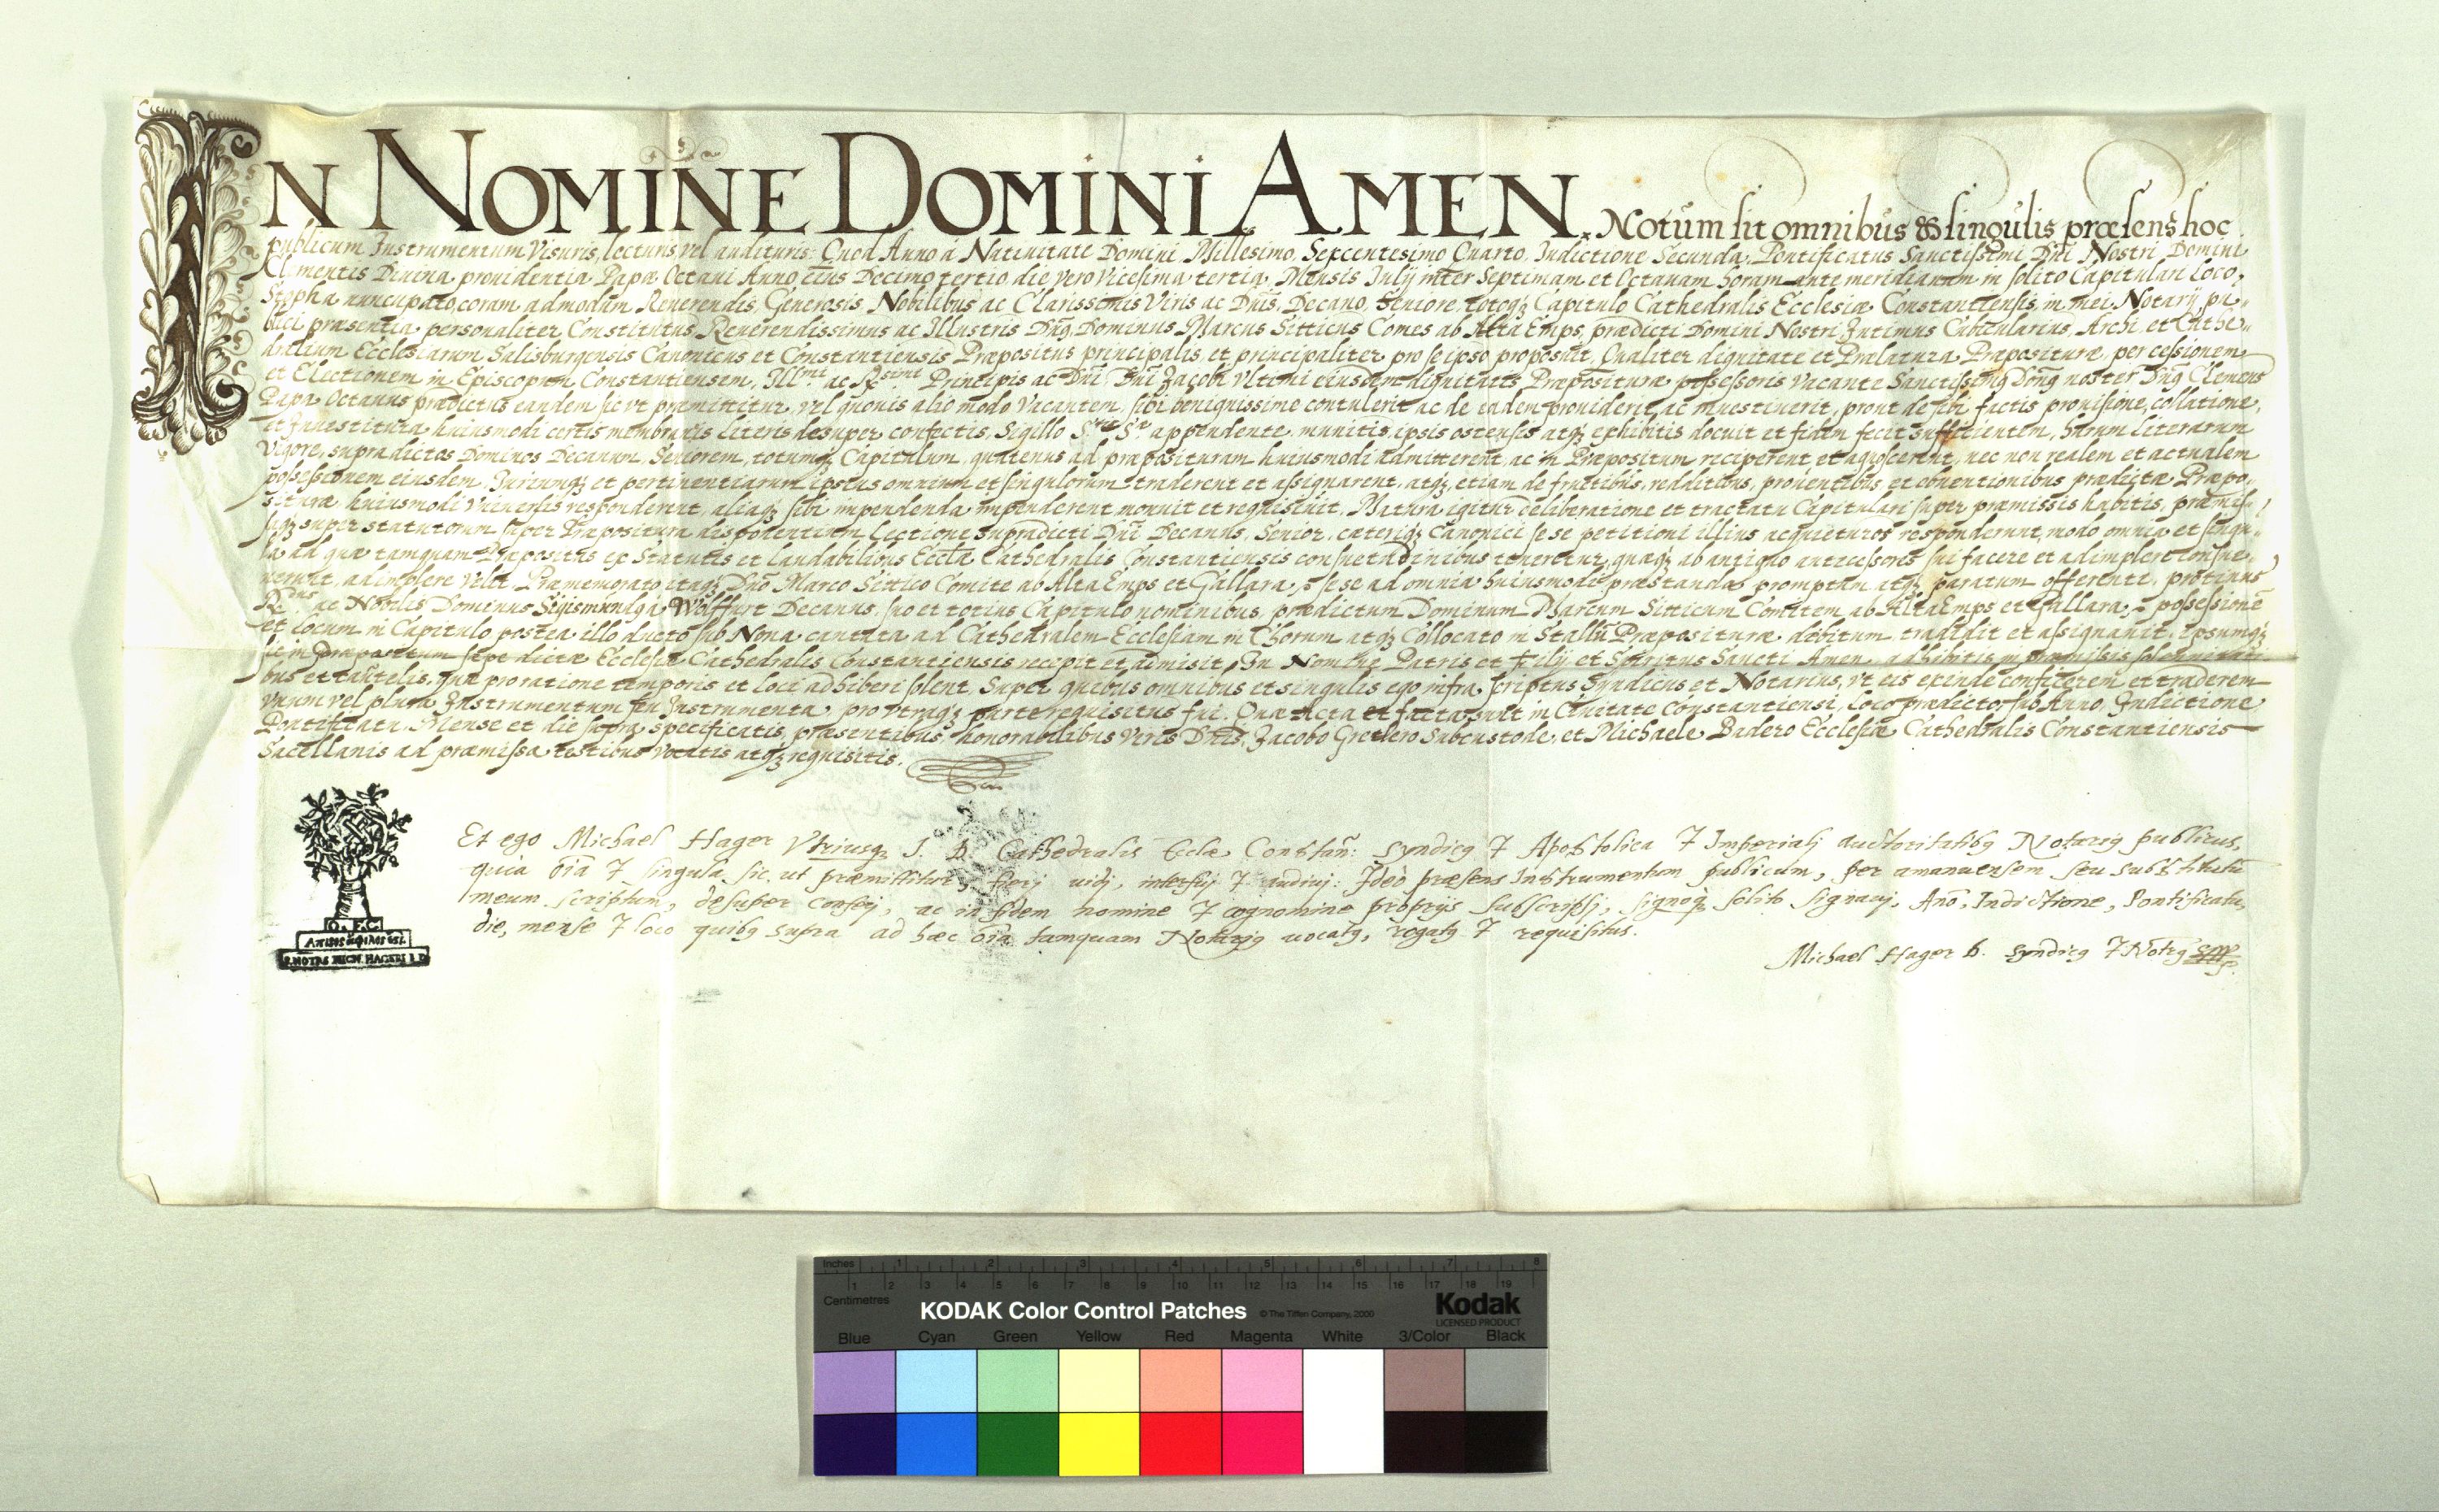 IN NOMINE DOMINI AMEN. Notum sit omnibus & singulis præsens hoc
publicum Instrumentum Visuris, lecturis vel audituris: Quod Anno à Nativitate Domini Millesimo, Sexcentesimo Quarto, Indictione Secunda, Pontificatus Sanctissimi Dñi Nostri Domini
Clementis Divina providentia Papæ Octavi Anno eius Decimo tertio, die vero Vicesima tertia, Mensis Iulij inter Septimam et Octavam horam ante meridianam in solito Capitulari loco,
Stopha nuncupato, coram admodum Reverendis, Generosis, Nobilibus ac Clarissimis Viris ac Dñis, Decano, Seniore, totoqʒ Capitulo Cathedralis Ecclesiæ Constantiensis, in mei Notarij pu„
blici præsentia, personaliter Constitutus, Reverendissimus ac Illustris Dñs, Dominus Marcus Sitticus Comes ab Alta Emps, prædicti Domini Nostri Intimus Cubicularius, Archi et Cathe„
dralium Ecclesiarum Salisburgensis Canonicus et Constantiensis Præpositus principalis, et principaliter pro se ipso proposuit, Qualiter dignitate et Prælatura Præpositure, per cessionem
et Electionem in Episcopum Constantiensem, Ill.mi ac R.simi Principis ac Dñi Dñi Jacobi Vltimi eiusdem dignitatis Præpositure possessoris vacante Sanctissimg Dñg noster Dñg Clemens
Papa Octavus prædictus eandem sic vt præmittitur, vel quovis alio modo Vacantem, sibi benignissime contulerit ac de eadem providerit, ac investiverit, prout de sibi factis provisione, collatione,
et Investitura huiusmodi certis membranis literis desuper confectis, Sigillo S.tis S.æ appendente, munitis, ipsis ostensis atqʒ exhibitis docuit et fidem fecit sufficientem, harum literarum
Vigore, supradictos Dominos Decanum, Seniorem, totumqʒ Capitulum, quatenus ad præposituram huiusmodi admitterent, ac in Præpositum reciperent et agnoscerent, nec non realem et actualem
possessionem eiusdem, Iuriumqʒ et pertinentiarum ipsius omnium et singulorum traderent et assignarent, atqʒ etiam de fructibus, redditibus, proventibus et obventionibus prædictæ Præpo„
situræ huiusmodi Vniversis responderent, aliaqʒ sibi impendenda impenderent monuit et requisivit, Matura igitur deliberatione et tractatu Capitulari super præmissis habitis, præmis„
saqʒ super statutorum super Præpositura disponentium lectione supradicti Dñi Decanus, Senior, cæteriqʒ Canonici se se petitioni illius acquieturos responderunt, modo omnia et singu„
la ad quæ tamquam Præpositus ex Statutis et laudabilibus Ecclæ Cathedralis Constantiensis consuetudinibus teneretur, quæqʒ ab antiquo antecessores sui facere et adimplere consue„
verunt, adimplere velit. Præmemorato itaqʒ Dño Marco Sittico Comite ab Alta Emps et Gallara, se se ad omnia huiusmodi præstanda promptum atqʒ paratum offerente, protinus
R.dus ac Nobilis Dominus Sigismundg a Wolffurt Decanus, suo et totius Capitulo nominibus, prædictum Dominum Marcum Sitticum Comitem ab Alta Emps et Gallara, possessionē
et locum in Capitulo postea illo ducto sub Nona cantata ad Cathedralem Ecclesiam in Chorum atqʒ Collocato in Stallū Præposituræ debitum, tradidit et assignavit, ipsumqʒ
sepe dictæ Ecclesiæ Cathedralis Constantiensis recepit et admisit, In Nomine Patris et Filij et Spiritus Sancti Amen, adhibitis in præmissis solemnitati
bus et cautelis, quæ pro ratione temporis et loci adhiberi solent. Super quibus omnibus et singulis ego infra scriptus Syndicus et Notarius, vt eis exinde conficerem et traderem
vnum vel plura Instrumentum seu Instrumenta, pro vtraqʒ parte requisitus fui. Quæ Acta et facta sunt in Civitate Constantiensi, loco prædicto, sub Anno, Indictione
Pontificatu, Mense et die supra specificatis, præsentibus, honorabilibus Viris Dñis, Jacobo Gretlero Subcustode, et Michaele Badero Ecclesiæ Cathedralis Constantiensis
Sacellanis ad præmissa testibus vocatis atqʒ requisitis.
Et ego Michael Hager Vtriusqʒ I. D. Cathedralis Eccłæ Constañ: Syndicg & Apostolica & Imperialj auctoritatibg Notarig publicus,
quia oĩa & singula sic, ut præmittitur, fierj vidj, interfuj & audivj: Ideò præsens Instrumentum publicum, per amanuensem seu substitutū
meum scriptum, desuper confecj, ac in fidem nomine & cognomine proprijs subscripsj, signoqʒ solito signavj, Año, Indictione, Pontificatu,
die, mense & loco quibg supra ad hæc oĩa tamquam Notarig vocatg, rogatg & requisitus.
Michael Hager D. Syndicg & Notrig
O. F. C.
S. NOTRS MICH. HAGERI I. D.
Inches 1 2 3 4 5 6 7 8
1 2 3 4 5 6 7 8 9 10 11 12 13 14 15 16 17 18 19
Centimetres
KODAK Color Control Patches © The Tiffen Company, 2000 Kodak
LICENSED PRODUCT
Blue Cyan Green Yellow Red Magenta White 3/Color Black